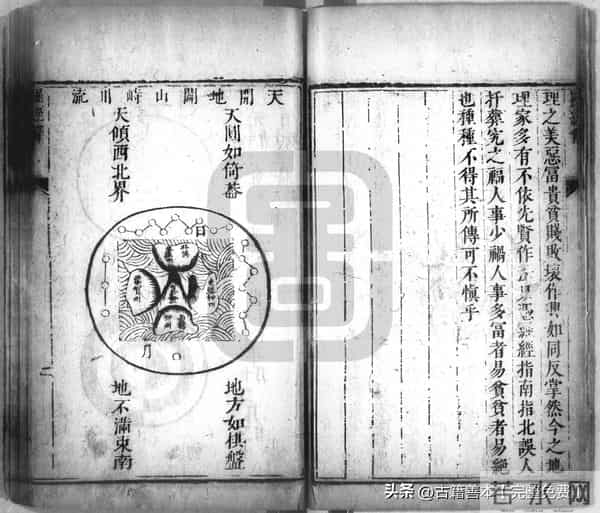 理之美惡富貴貧賤敗壞作如同反掌然今之地
理家多有不依先賢作經指南指北誤人
扦葬之人事少人事多富者易貧貧者易絕
也種種不得其所傳可不慎乎
天開地闢山峙川流
天圓如倚葢
天傾西北界
日
月
地方如棋盤
地不滿東南
头条 @古籍善本 完整免费